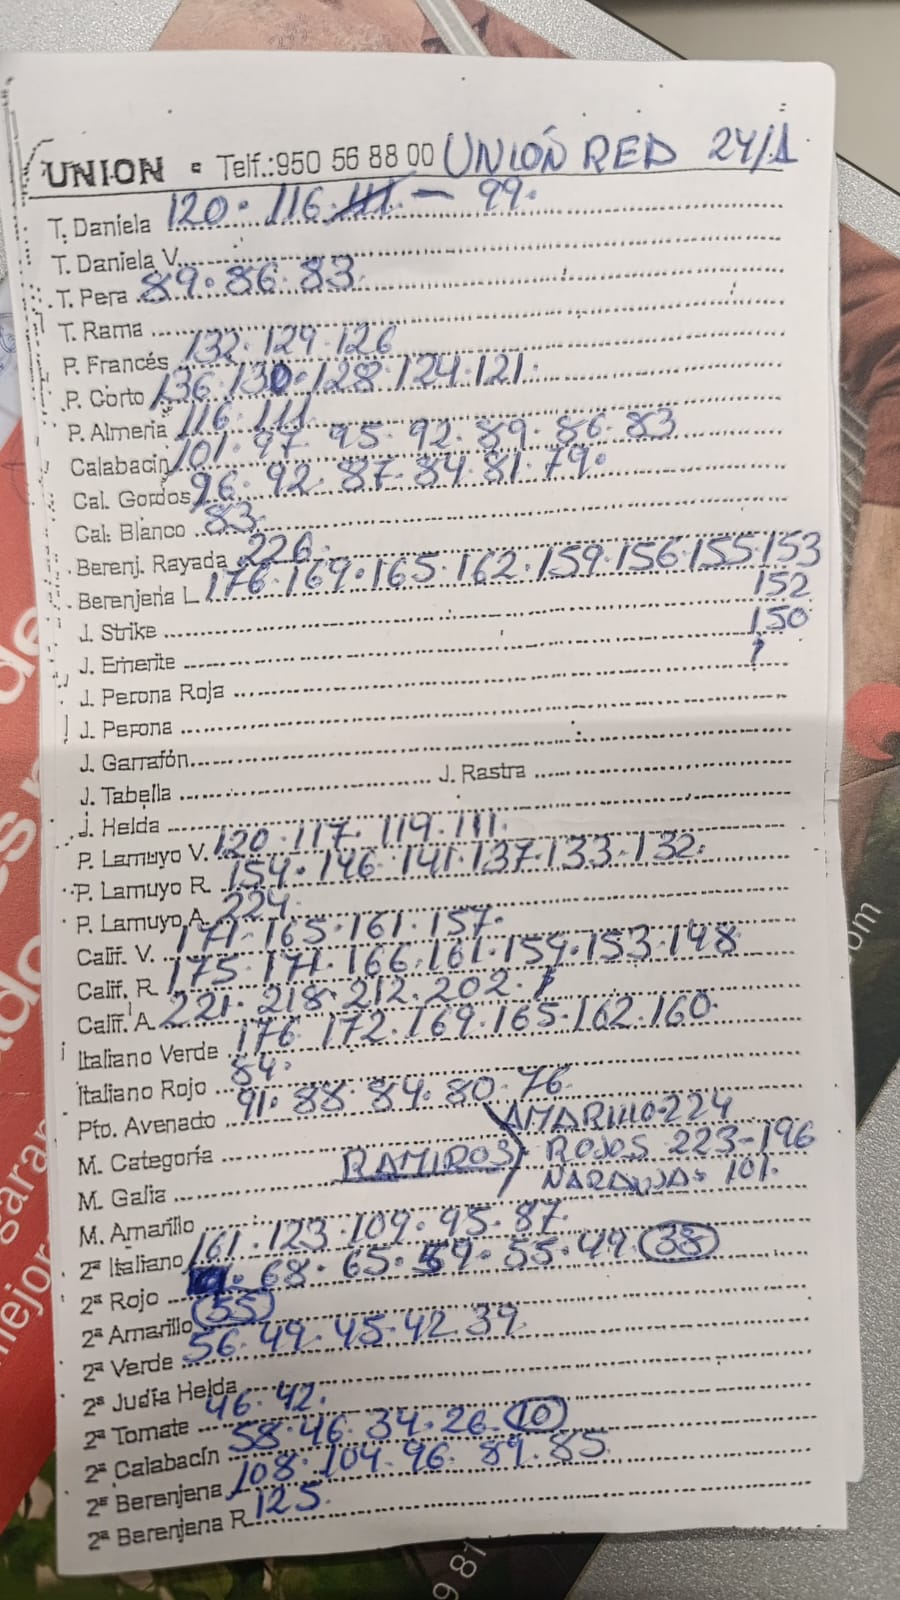 UNION - Telf.:950 56 88 00 UNIÓN RED 24/1
T. Daniela 120. 116. 111. - 99.
T. Daniela V.
T. Pera 89. 86. 83.
T. Rama
P. Francés 132. 129. 126
P. Corto 136. 130. 128. 124. 121.
P. Almeria 116. 111
Calabacin 101. 97. 95. 92. 89. 86. 83
Cal. Gordos 96. 92. 87. 84. 81. 79.
Cal. Blanco 83.
Berenj. Rayada 226.
Berenjena L. 176. 169. 165. 162. 159. 156. 155. 153
152
J. Strike
150
J. Emerite
J. Perona Roja
J. Perona
J. Garrafón
J. Tabella J. Rastra
J. Helda
P. Lamuyo V. 120. 117. 114. 111.
P. Lamuyo R. 154. 146. 141. 137. 133. 132.
P. Lamuyo A. 224.
Calif. V. 171. 165. 161. 157.
Calif. R. 175. 171. 166. 161. 159. 153. 148
Calif. A. 221. 218. 212. 202.
Italiano Verde 176. 172. 169. 165. 162. 160.
Italiano Rojo 84.
Pto. Avenado 91. 88. 84. 80. 76
AMARILLO-224
M. Categoría RAMIROS ROJOS 223-196
NARANJA- 101.
M. Galia
M. Amarillo
2ª Italiano 161. 123. 109. 95. 87.
2ª Rojo 68. 65. 59. 55. 49. 38
2ª Amarillo 55
2ª Verde 56. 49. 45. 42. 39
2ª Judía Helda
2ª Tomate 46. 42.
2ª Calabacín 58. 46. 34. 26. 10
2ª Berenjena 108. 104. 96. 89. 85
2ª Berenjena R. 125.